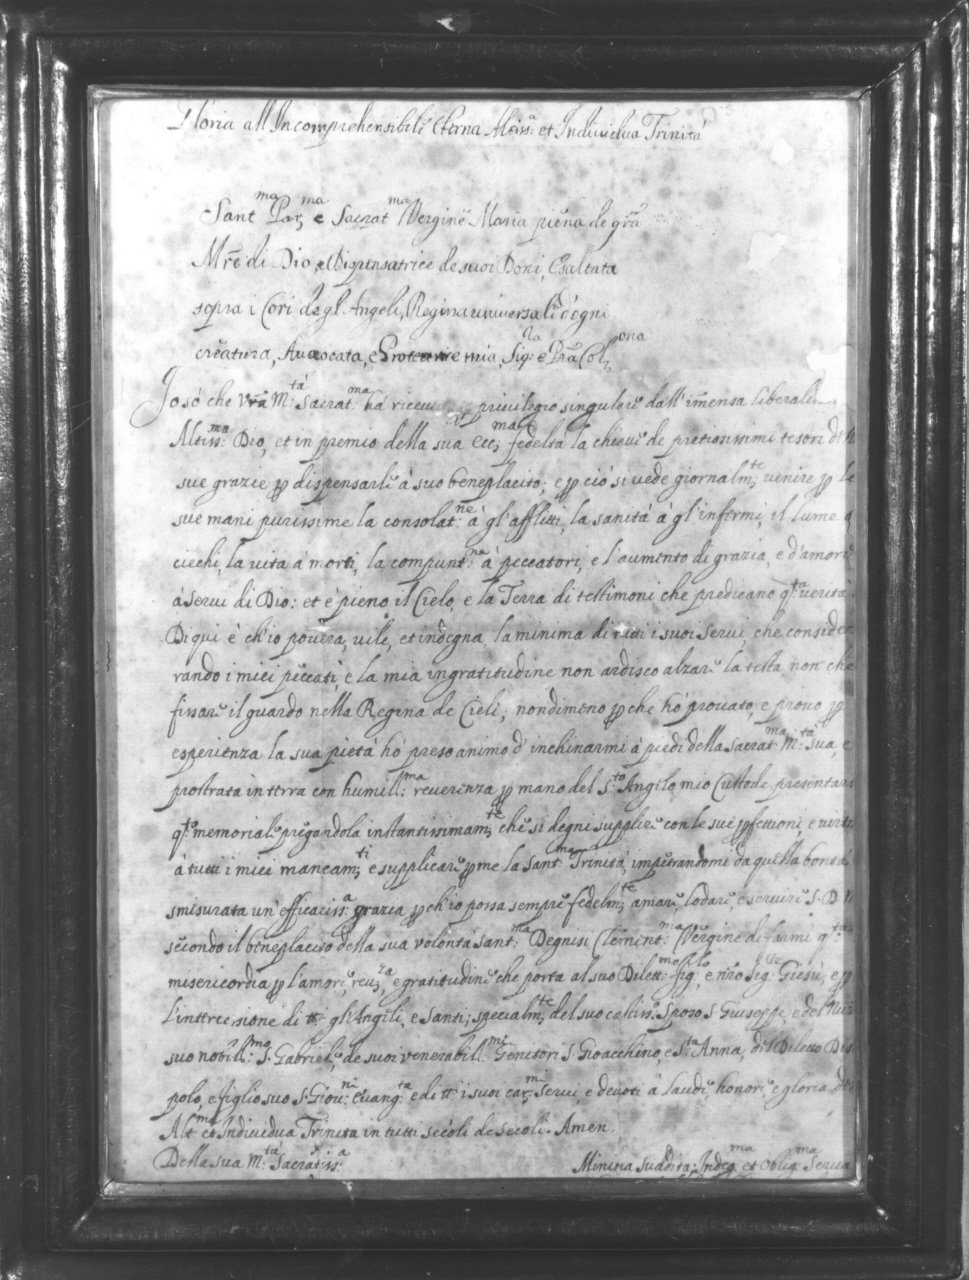 Gloria all'Incomprehensibile Eterna Altiss.ª et Individua Trinità
Sant.ma Par.ma e Sacrat.ma Vergine Maria piena de gr̃a
Mr̃e di Dio, e Dispensatrice de suoi Doni, Esaltata
sopra i Cori degl'Angeli, Regina universale d'ogni
creatura, Avvocata, e Protettrice mia, Sig.ra e Pr̃a Col.ma
Io sò che Vr̃a M.tà Sacrat.ma hà ricevu privilegio singulare dall'im̃ensa liberal
Altiss.mo Dio, et in premio della sua ecc.ma fedeltà la chiave de pretiosissimi tesori
sue grazie ꝑ dispensarle à suo beneplacito; e ꝑ ciò si vede giornalm.te venire ꝑ le
sue mani purissime la consolat.ne à gl'afflitti, la sanità à gl'infermi, il lume a
ciechi, la vita à morti, la compunt.ne à peccatori, e l'aumento di grazia, e d'amore
à servi di Dio: et è pieno il Cielo, e la Terra di testimoni che predicano q.ta verità.
Di qui è ch'io povera, vile, et indegna, la minima di tutti i suoi servi, che conside
rando i miei peccati, e la mia ingratitudine non ardisco alzare la testa non che
fissare il guardo nella Regina de Cieli; nondimeno ꝑche hò provato, e provo ꝑ
esperienza la sua pietà hò preso animo d'inchinarmi à piedi della Sacrat.ma M.tà sua, e
prostrata in terra con humill.ma reverenza ꝑ mano del S.to Angilo mio Custode presentare
q.to memoriale pregandola instantissimam.te che si degni supplire con le sue ꝑfettioni, e virtù
à tutti i miei mancam.ti e supplicare ꝑ me la Sant.ma Trinità, impetrandomi da quella bontà
smisurata un'efficaciss.ª grazia ꝑ ch'io possa sempre fedelm.te amare, lodare, e servire S. D. M
secondo il beneplacito della sua volontà sant.ma Degnisi Clement.ma Vergine di farmi q.ta
misericordia ꝑ l'amore, rev.za, e gratitudine che porta al suo Dilett.mo fig.lo, e nr̃o Sig.re Giesù; e ꝑ
l'intercessione di tt.i gl'Angili, e Santi; specialm.te del suo castiss.º Sposo S. Giuseppe, e del
suo nobiliss.mo S. Gabriele, de suoi venerabil.mi Genitori S. Gioacchino, e S.ta Anna, del Diletto Disce
polo, e figlio suo S. Giov.ni Evang.ta e di tt.i i suoi car.mi servi e devoti à laude, honore, e gloria
Alt.ma et Individua Trinità in tutti secoli de secoli. Amen.
Della sua M.tà Sacratiss.ª
Minima Suddita, Indeg.ma et Oblig.ma Serva